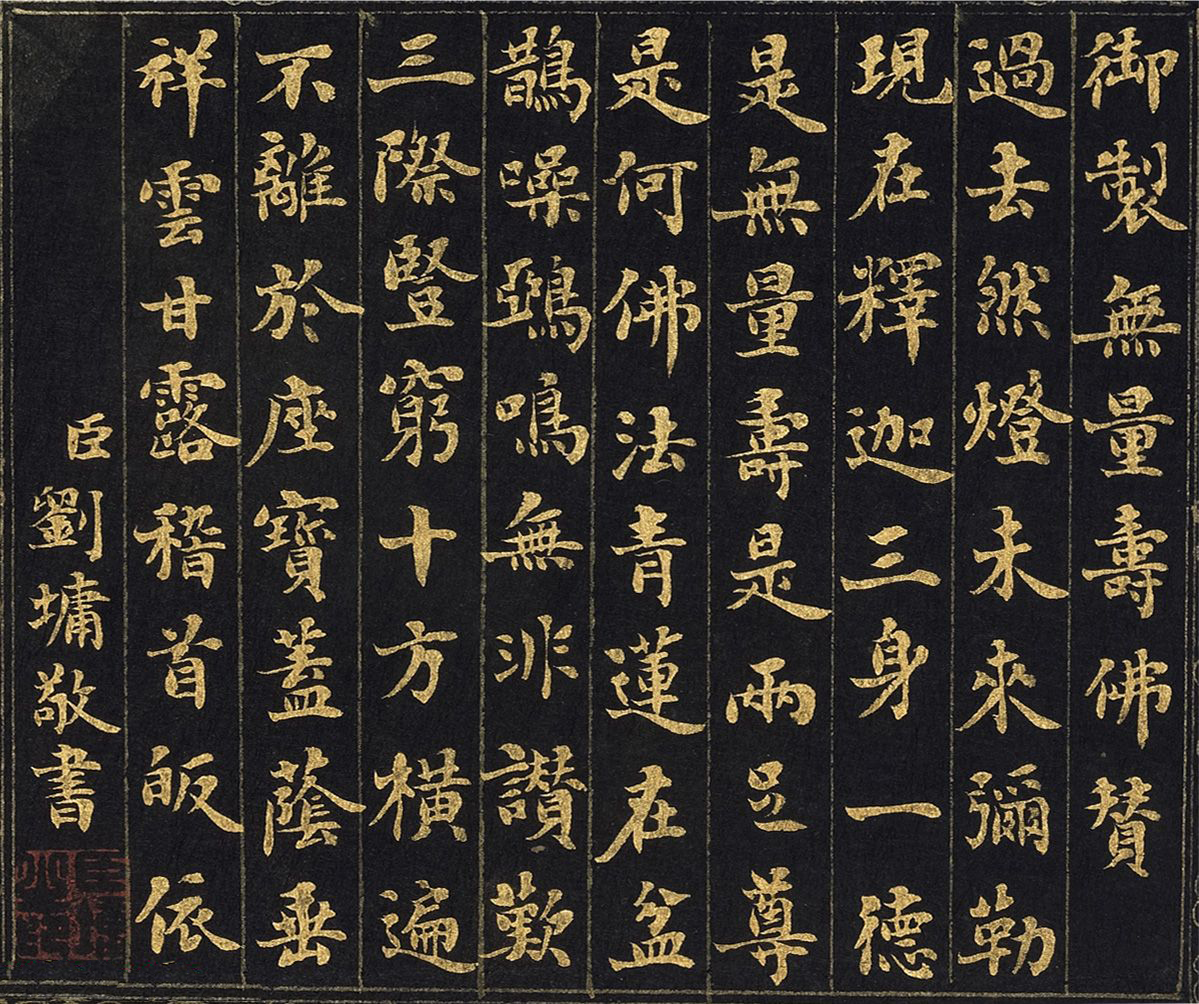 御製無量壽佛贊
過去然燈未來彌勒
現在釋迦三身一德
是無量壽是兩足尊
是何佛法青蓮在盆
鵲噪鵶鳴無非讚歎
三際豎窮十方橫遍
不離於座寶蓋蔭垂
祥雲甘露稽首皈依
臣劉墉敬書